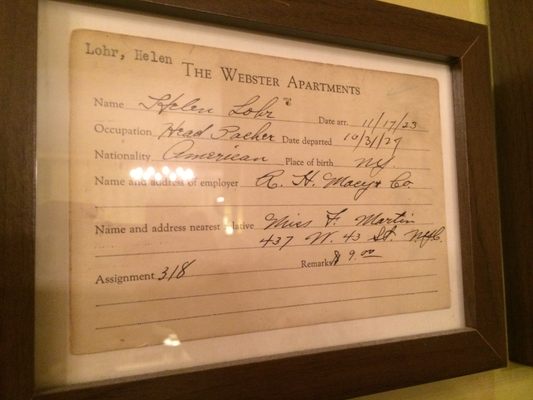 Lohr, Helen
The Webster Apartments
Name Helen Lohr Date arr. 11/17/23
Occupation Head Packer Date departed 10/31/29
Nationality American Place of birth NY
Name and address of employer R. H. Macy & Co.
Name and address nearest relative Miss F. Martin
437 W. 43 St. NYC.
Assignment 318 Remarks $9.00